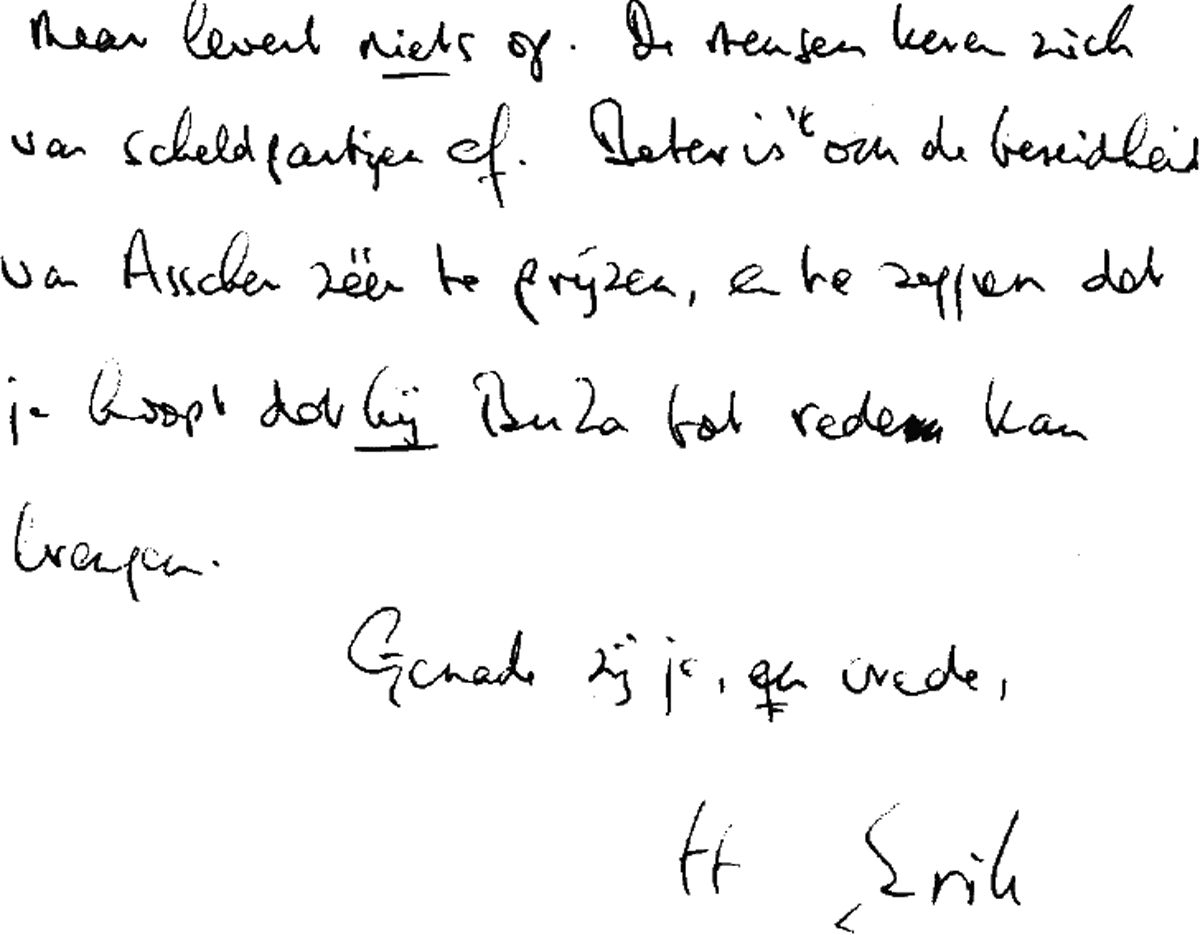 maar levert niets op. De mensen keren zich
van scheldpartijen af. Beter is 't om de bereidheid
van Asscher zéér te prijzen, en te zeggen dat
je hoopt dat hij BuZa tot rede kan
brengen.
Genade zij je, en vrede,
tt Erik